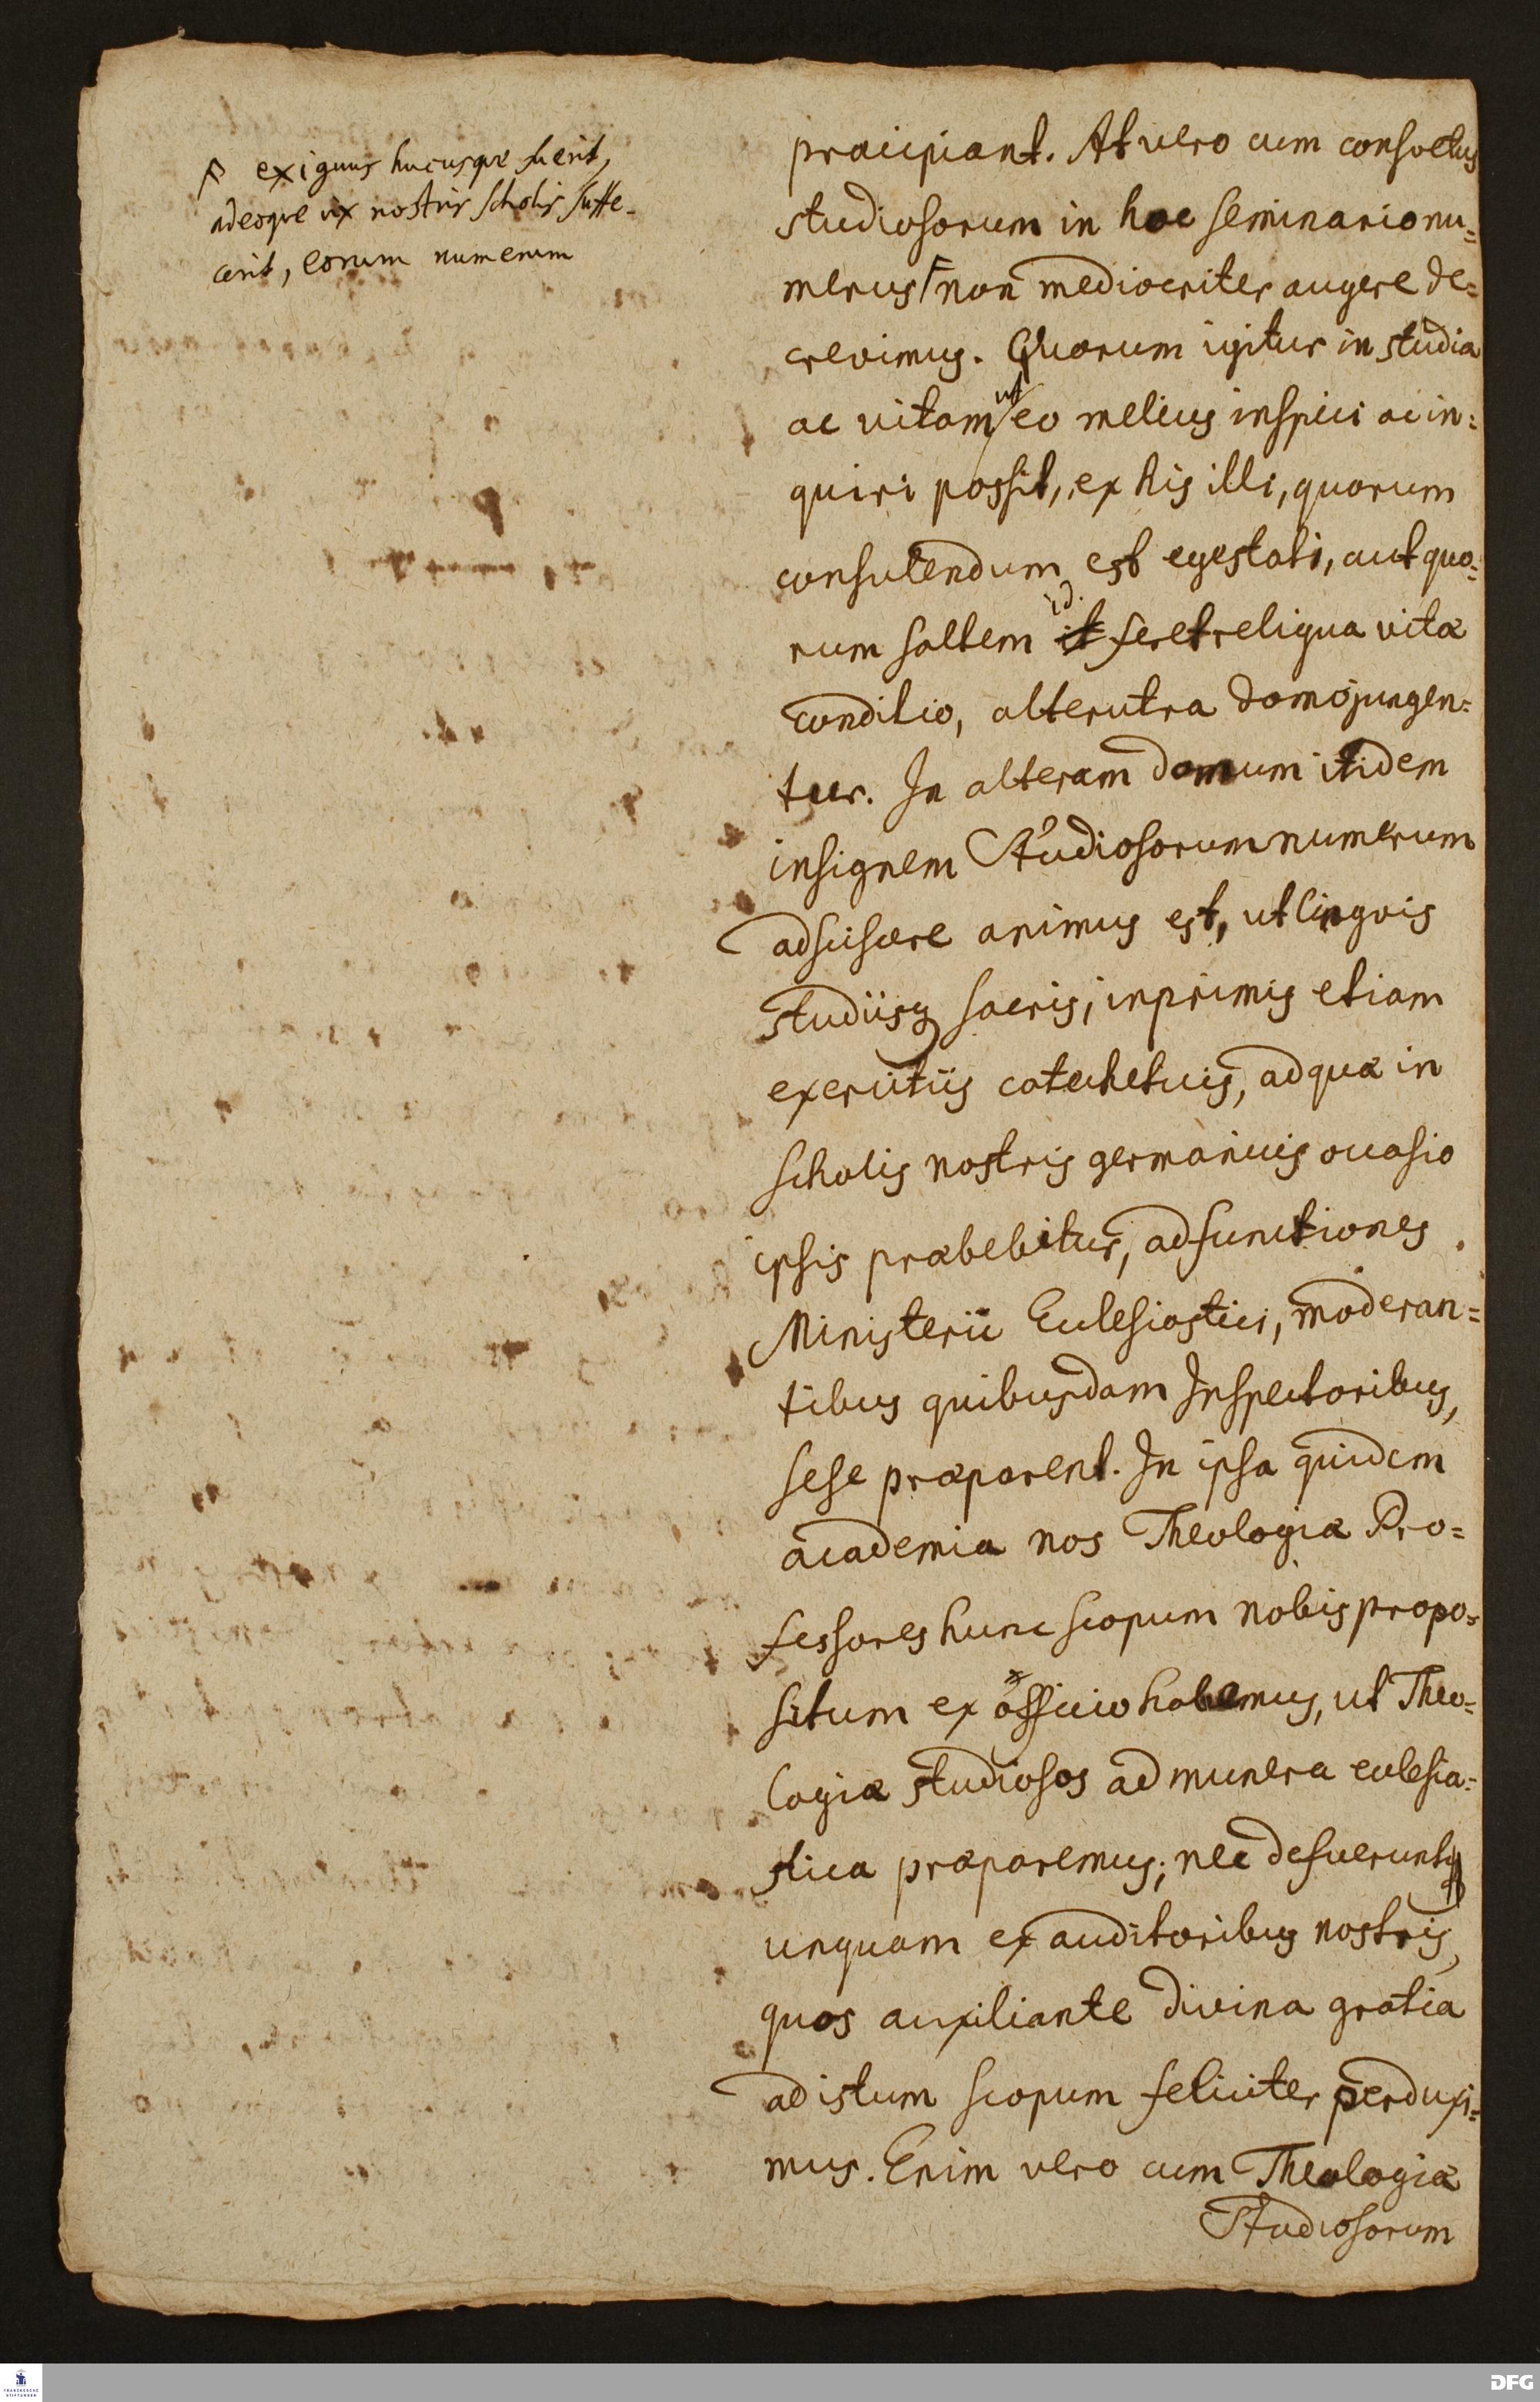 exiguus hucusque fuerit,
adeoque vix nostris scholis suffe-
cerit, eorum numerum
præcipiant. At vero cum consvetus
studiosorum in hoc seminario nu=
merus non mediocriter augere de=
crevimus. Quorum igitur in studia
ac vitam ut eo melius inspici ac in=
quiri possit, ex his illi, quorum
consulendum est egestati, aut quo=
rum saltem id feret reliqua vitæ
conditio, alterutra domo jungen=
tur. In alteram domum itidem
insignem Studiosorum numerum
adsciscere animus est, ut lingvis
studiisq sacris, inprimis etiam
exercitiis catecheticis, ad quæ in
scholis nostris germanicis occasio
ipsis præbebitur, ad functiones
Ministerii Ecclesiastici, moderan=
tibus quibusdam Inspectoribus,
sese præparent. In ipsa quidem
academia nos Theologiæ Pro=
fessores hunc scopum nobis propo=
situm ex officio habemus, ut Theo=
logiæ studiosos ad munera ecclesia=
stica præparemus; nec defuerunt
unquam ex auditoribus nostris,
quos auxiliante divina gratia
ad istum scopum feliciter perduxi=
mus. Enim vero cum Theologiæ
Studiosorum
FRANCKESCHE
STIFTUNGEN
DFG